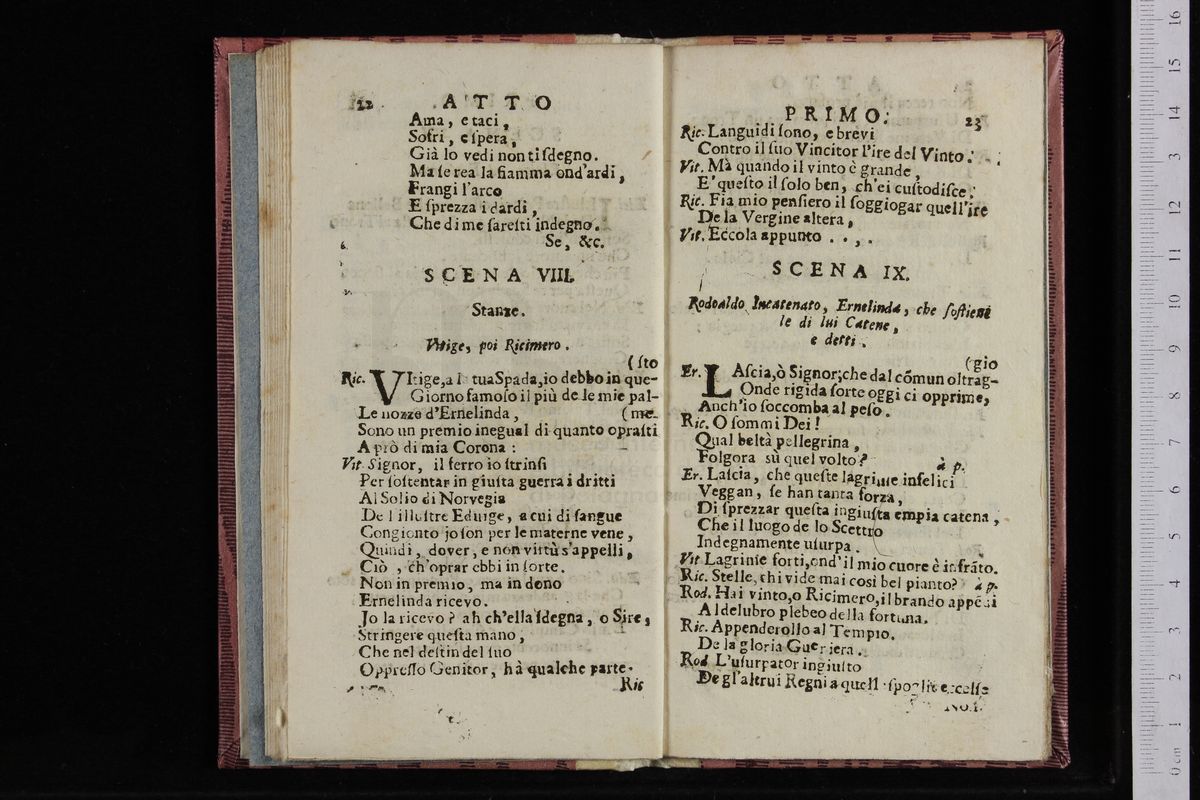 22 ATTO
Ama, e taci,
Sofri, e ſpera,
Già lo vedi non ti ſdegno.
Ma ſe rea la fiamma ond'ardi,
Frangi l'arco
E ſprezza i dardi,
Che di me ſareſti indegno.
Se, &c.
SCENA VIII.
Stanze.
Vitige, poi Ricimero.
(ſto
Ric. VItige, a la tua Spada, io debbo in que-
Giorno famoſo il più de le mie pal-
Le nozze d'Ernelinda, (me.
Sono un premio inegual di quanto opraſti
A prò di mia Corona:
Vit. Signor, il ferro io ſtrinſi
Per ſoſtentar in giuſta guerra i dritti
Al Solio di Norvegia
De l'illuſtre Eduige, a cui di ſangue
Congionto jo ſon per le materne vene,
Quindi, dover, e non virtù s'appelli,
Ciò, ch'oprar ebbi in ſorte.
Non in premio, ma in dono
Ernelinda ricevo.
Jo la ricevo? ah ch'ella ſdegna, o Sire,
Stringere queſta mano,
Che nel deſtin del ſuo
Oppreſſo Genitor, hà qualche parte.
Ric
PRIMO. 23
Ric. Languidi ſono, e brevi
Contro il ſuo Vincitor l'ire del Vinto.
Vit. Mà quando il vinto è grande,
E' queſto il ſolo ben, ch'ei cuſtodiſce.
Ric. Fia mio penſiero il ſoggiogar quell'ire
De la Vergine altera,
Vit. Eccola appunto . . , .
SCENA IX.
Rodoaldo Incatenato, Ernelinda, che ſoſtiene
le di lui Catene,
e detti.
(gio
Er. LAſcia, ò Signor; che dal cõmun oltrag-
Onde rigida ſorte oggi ci opprime,
Anch'io ſoccomba al peſo.
Ric. O ſommi Dei!
Qual beltà pellegrina,
Folgora sù quel volto? à p.
Er. Laſcia, che queſte lagrime infelici
Veggan, ſe han tanta forza,
Di ſprezzar queſta ingiuſta empia catena,
Che il luogo de lo Scettro
Indegnamente uſurpa.
Vit Lagrime forti, ond'il mio cuore è infrãto.
Ric. Stelle, chi vide mai così bel pianto? à p.
Rod. Hai vinto, o Ricimero, il brando appẽdi
Al delubro plebeo della fortuna.
Ric. Appenderollo al Tempio,
De la gloria Guerriera.
Rod L'uſurpator ingiuſto
De gl'altrui Regni a quell ſpoglie eccelſe